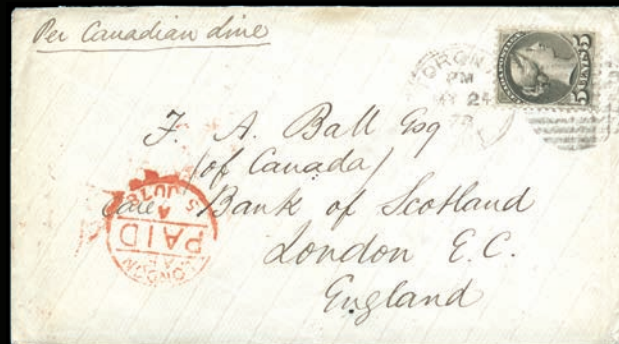 Per Canadian Line
TORON
PM
MY 24
78
5 CENTS 5
F. A. Ball Esq
(of Canada)
care Bank of Scotland
London E. C.
England
LONDON
PAID